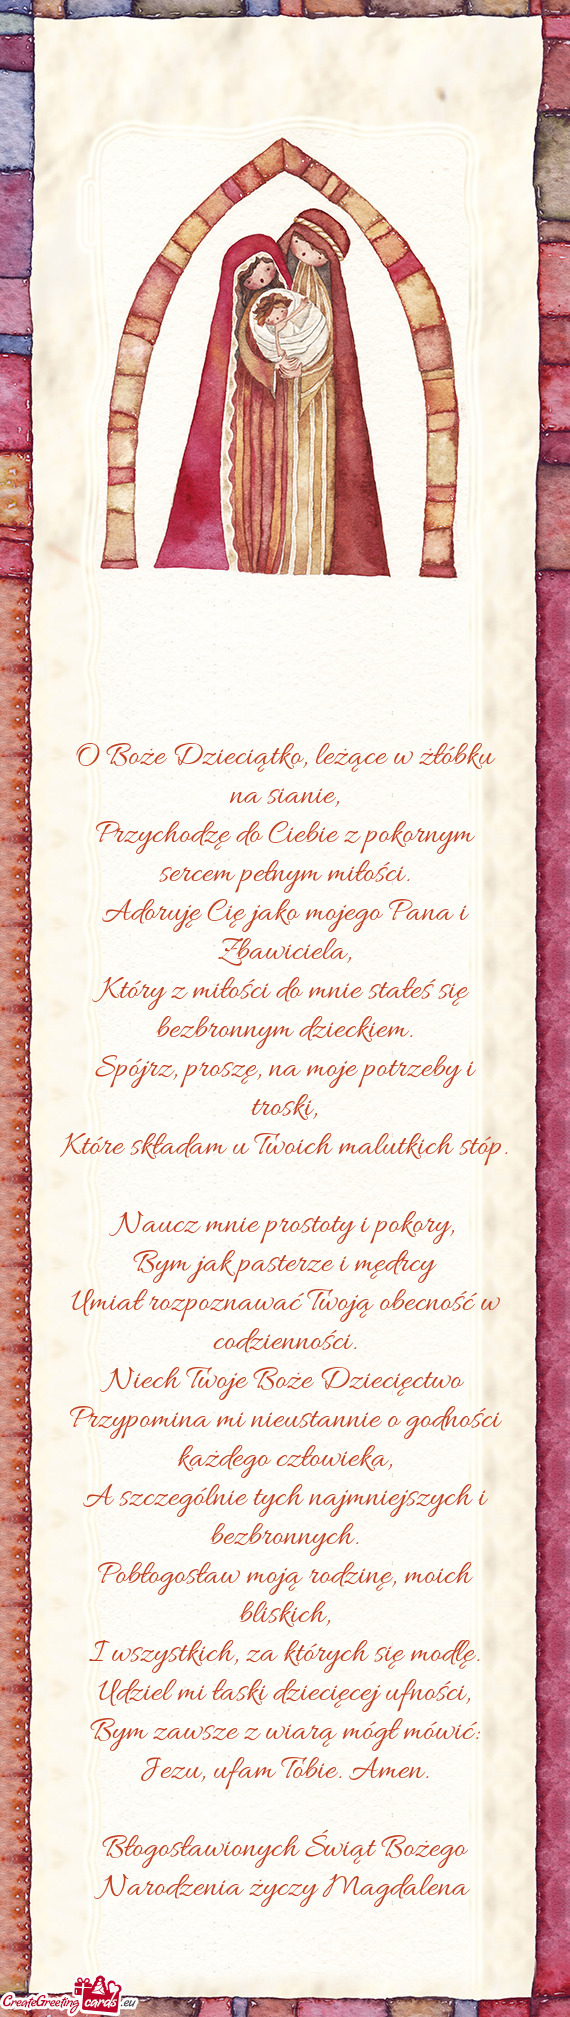 O Boże Dzieciątko, leżące w żłóbku
na sianie,
Przychodzę do Ciebie z pokornym
sercem pełnym miłości.
Adoruję Cię jako mojego Pana i
Zbawiciela,
Który z miłości do mnie stałeś się
bezbronnym dzieckiem.
Spójrz, proszę, na moje potrzeby i
troski,
Które składam u Twoich malutkich stóp.
Naucz mnie prostoty i pokory,
Bym jak pasterze i mędrcy
Umiał rozpoznawać Twoją obecność w
codzienności.
Niech Twoje Boże Dziecięctwo
Przypomina mi nieustannie o godności
każdego człowieka,
A szczególnie tych najmniejszych i
bezbronnych.
Pobłogosław moją rodzinę, moich
bliskich,
I wszystkich, za których się modlę.
Udziel mi łaski dziecięcej ufności,
Bym zawsze z wiarą mógł mówić:
Jezu, ufam Tobie. Amen.
Błogosławionych Świąt Bożego
Narodzenia życzy Magdalena
CreateGreeting cards .eu